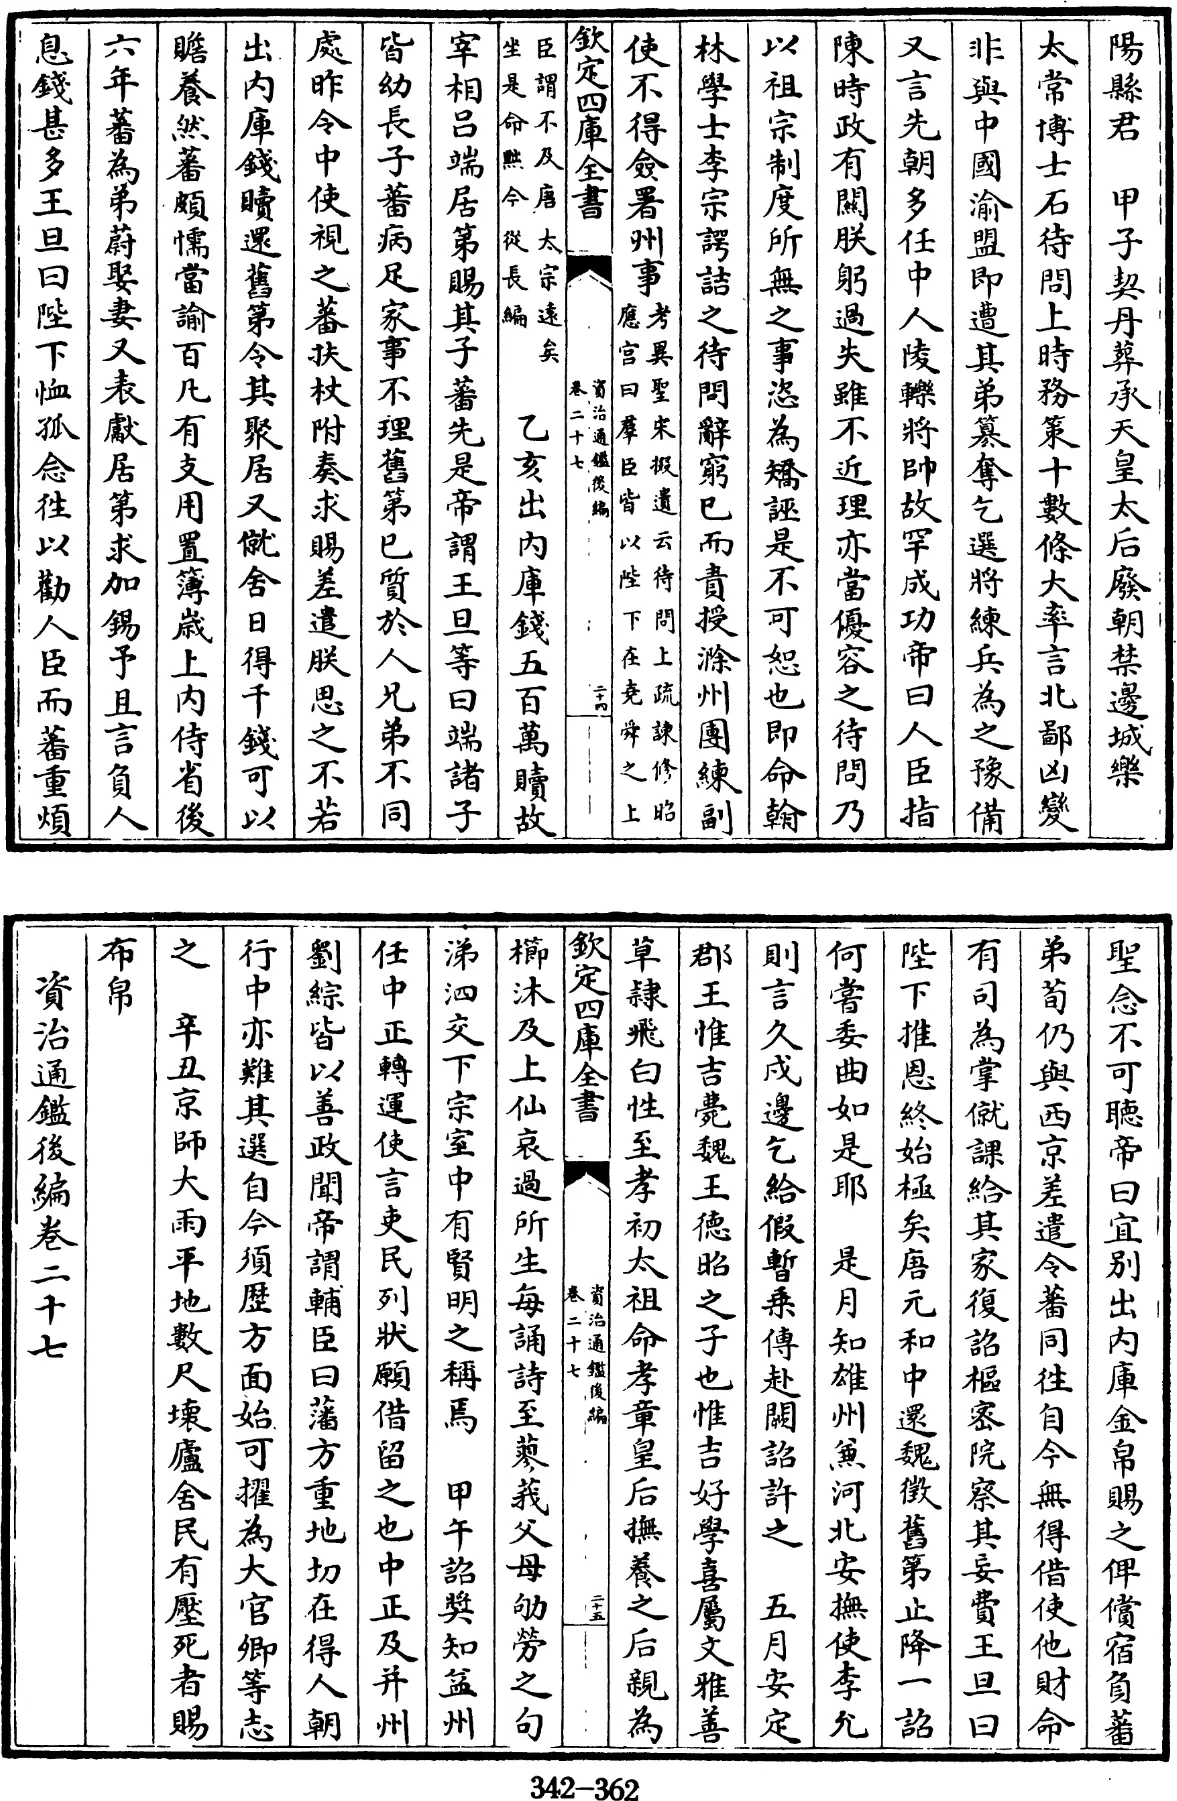 陽縣君　甲子契丹葬承天皇太后廢朝禁邊城樂
太常博士石待問上時務策十數條大率言北鄙凶變
非與中國渝盟即遭其弟篡奪乞選將練兵為之豫備
又言先朝多任中人陵轢將帥故罕成功帝曰人臣指
陳時政有闕朕躬過失雖不近理亦當優容之待問乃
以祖宗制度所無之事恣為矯誣是不可恕也即命翰
林學士李宗諤詰之待問辭窮已而責授滁州團練副
使不得僉署州事考異聖宋掇遺云待問上疏諫修昭
應宮曰羣臣皆以陛下在堯舜之上
欽定四庫全書
資治通鑑後編
卷二十七
二十四
臣謂不及唐太宗遠矣
坐是命黜今從長編
乙亥出内庫錢五百萬贖故
宰相吕端居第賜其子蕃先是帝謂王旦等曰端諸子
皆幼長子蕃病足家事不理舊第已質於人兄弟不同
處昨令中使視之蕃扶杖附奏求賜差遣朕思之不若
出内庫錢贖還舊第令其聚居又僦舍日得千錢可以
贍養然蕃頗懦當諭百凡有支用置簿歲上内侍省後
六年蕃為弟蔚娶妻又表獻居第求加錫予且言負人
息錢甚多王旦曰陛下恤孤念往以勸人臣而蕃重煩
聖念不可聽帝曰宜别出内庫金帛賜之俾償宿負蕃
弟荀仍與西京差遣令蕃同往自今無得借使他財命
有司為掌僦課給其家復詔樞密院察其妄費王旦曰
陛下推恩終始極矣唐元和中還魏徵舊第止降一詔
何嘗委曲如是耶　是月知雄州兼河北安撫使李允
則言久戍邊乞給假暫乗傳赴闕詔許之　五月安定
郡王惟吉薨魏王德昭之子也惟吉好學喜屬文雅善
草隸飛白性至孝初太祖命孝章皇后撫養之后親為
欽定四庫全書
資治通鑑後編
卷二十七
二十五
櫛沐及上仙哀過所生每誦詩至蓼莪父母劬勞之句
涕泗交下宗室中有賢明之稱焉　甲午詔奬知益州
任中正轉運使言吏民列狀願借留之也中正及并州
劉綜皆以善政聞帝謂輔臣曰藩方重地切在得人朝
行中亦難其選自今須歴方面始可擢為大官卿等志
之　辛丑京師大雨平地數尺壞廬舍民有壓死者賜
布帛
資治通鑑後編卷二十七
342-362